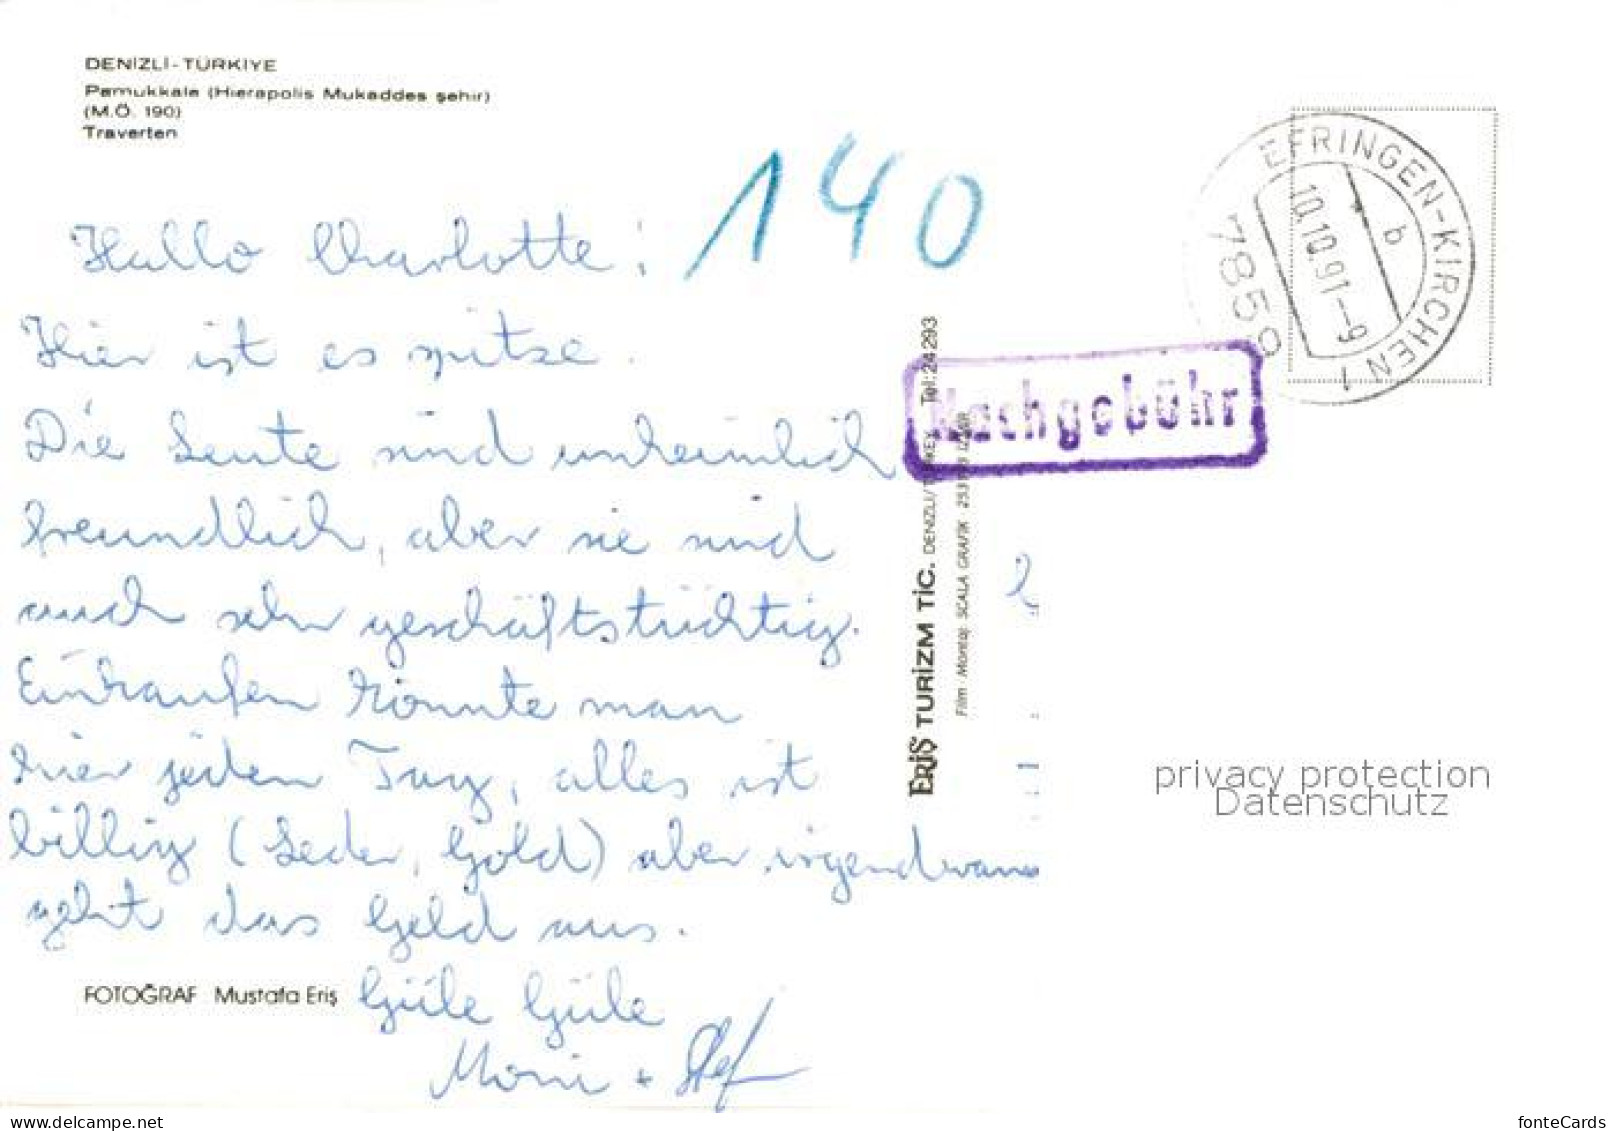 DENİZLİ-TÜRKİYE
Pamukkale (Hierapolis Mukaddes şehir)
(M.Ö. 190)
Traverten
140
Hallo Charlotte!
Hier ist es spitze.
Die Leute sind unheimlich
freundlich, aber sie sind
auch sehr geschäftstüchtig.
Einkaufen könnte man
hier jeden Tag, alles ist
billig (Leder, Gold) aber irgendwann
geht das Geld aus.
Güle Güle
Moni + Stef
FOTOĞRAF Mustafa Eriş
ERİŞ TURİZM TİC. DENİZLİ/TURKEY Tel: 24293
Film Montaj: SCALA GRAFİK
Nachgebühr
EFRINGEN-KIRCHEN 1
b
10.10.91-9
7859
privacy protection
Datenschutz
www.delcampe.net
fonteCards